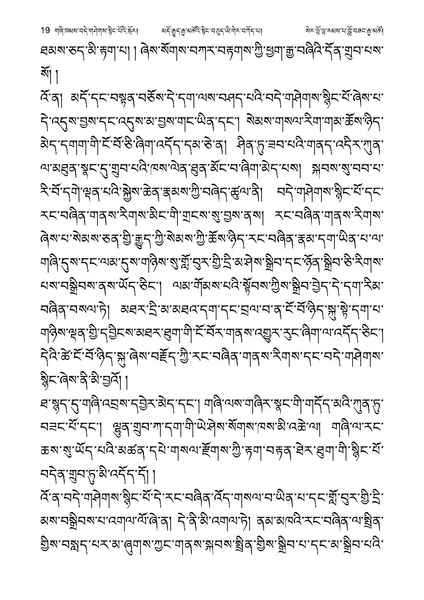 19 གཞི་ཁམས་བདེ་གཤེགས་སྙིང་པོའི་སྐོར།
མདོ་རྒྱུད་རྒྱ་མཚོའི་སྙིང་བཅུད་ཡི་གེར་བཀོད་པ།
སེར་བློ་ལྷ་རམས་པ་བློ་བཟང་རྒྱ་མཚོ།
ཐམས་ཅད་མི་རྟག་པ། ། ཞེས་སོགས་བཀར་བཏགས་ཀྱི་ཕྱག་རྒྱ་བཞིའི་དོན་གྲུབ་པས་
སོ། །
འོ་ན། མདོ་དང་བསྟན་བཅོས་དེ་དག་ལས་བཤད་པའི་བདེ་གཤེགས་སྙིང་པོ་ཞེས་པ་
དེ་འདུས་བྱས་དང་འདུས་མ་བྱས་གང་ཡིན་དང་། སེམས་གསལ་རིག་གམ་ཆོས་ཉིད་
མེད་དགག་གི་ངོ་བོ་ཅི་ཞིག་འདོད་དམ་ཅེ་ན། ཤིན་ཏུ་ཟབ་པའི་གནད་འདིར་ཀུན་
ལ་མཐུན་སྣང་དུ་གྲུབ་པའི་ཁས་ལེན་ཐུན་མོང་བ་ཞིག་མེད་པས། སྐབས་སུ་བབ་པ་
རི་བོ་དགེ་ལྡན་པའི་སྐྱེས་ཆེན་རྣམས་ཀྱི་བཞེད་ཚུལ་ནི། བདེ་གཤེགས་སྙིང་པོ་དང་
རང་བཞིན་གནས་རིགས་མིང་གི་གྲངས་སུ་བྱས་ནས། རང་བཞིན་གནས་རིགས་
ཞེས་པ་སེམས་ཅན་གྱི་རྒྱུད་ཀྱི་སེམས་ཀྱི་ཆོས་ཉིད་རང་བཞིན་རྣམ་དག་ཡིན་པ་ལ་
གཞི་དུས་དང་ལམ་དུས་གཉིས་སུ་གློ་བུར་གྱི་དྲི་མ་ཤེས་སྒྲིབ་དང་ཉོན་སྒྲིབ་ཅི་རིགས་
པས་བསྒྲིབས་ནས་ཡོད་ཅིང་། ལམ་གོམས་པའི་སྟོབས་ཀྱིས་སྒྲིབ་བྱེད་དེ་དག་རིམ་
བཞིན་བསལ་ཏེ། མཐར་དྲི་མ་མཐའ་དག་དང་བྲལ་བ་ན་ངོ་བོ་ཉིད་སྐུ་སྟེ་དག་པ་
གཉིས་ལྡན་གྱི་དབྱིངས་མཐར་ཐུག་གི་ངོ་བོར་གནས་འགྱུར་རུང་ཞིག་ལ་འདོད་ཅིང་།
དེའི་ཚེ་ངོ་བོ་ཉིད་སྐུ་ཞེས་བརྗོད་ཀྱི་རང་བཞིན་གནས་རིགས་དང་བདེ་གཤེགས་
སྙིང་ཞེས་ནི་མི་བྱའོ། །
ཐ་སྙད་དུ་གཞི་འབྲས་དབྱེར་མེད་དང་། གཞི་ལས་གཞིར་སྣང་གི་གདོད་མའི་ཀུན་ཏུ་
བཟང་པོ་དང་། ལྷུན་གྲུབ་ཀ་དག་གི་ཡེ་ཤེས་སོགས་ཁས་མི་འཆེ་ལ། གཞི་ལ་རང་
ཆས་སུ་ཡོད་པའི་མཚན་དཔེ་གསལ་རྫོགས་ཀྱི་རྟག་བརྟན་ཐེར་ཟུག་གི་སྙིང་པོ་
བདེན་གྲུབ་ཏུ་མི་འདོད་དོ། །
འོ་ན་བདེ་གཤེགས་སྙིང་པོ་དེ་རང་བཞིན་འོད་གསལ་བ་ཡིན་པ་དང་གློ་བུར་གྱི་དྲི་
མས་བསྒྲིབས་པ་འགལ་ལོ་ཞེ་ན། དེ་ནི་མི་འགལ་ཏེ། ནམ་མཁའི་རང་བཞིན་ལ་སྤྲིན་
གྱིས་བསླད་པར་མ་ཞུགས་ཀྱང་གནས་སྐབས་སྤྲིན་གྱིས་སྒྲིབ་པ་དང་མ་སྒྲིབ་པའི་